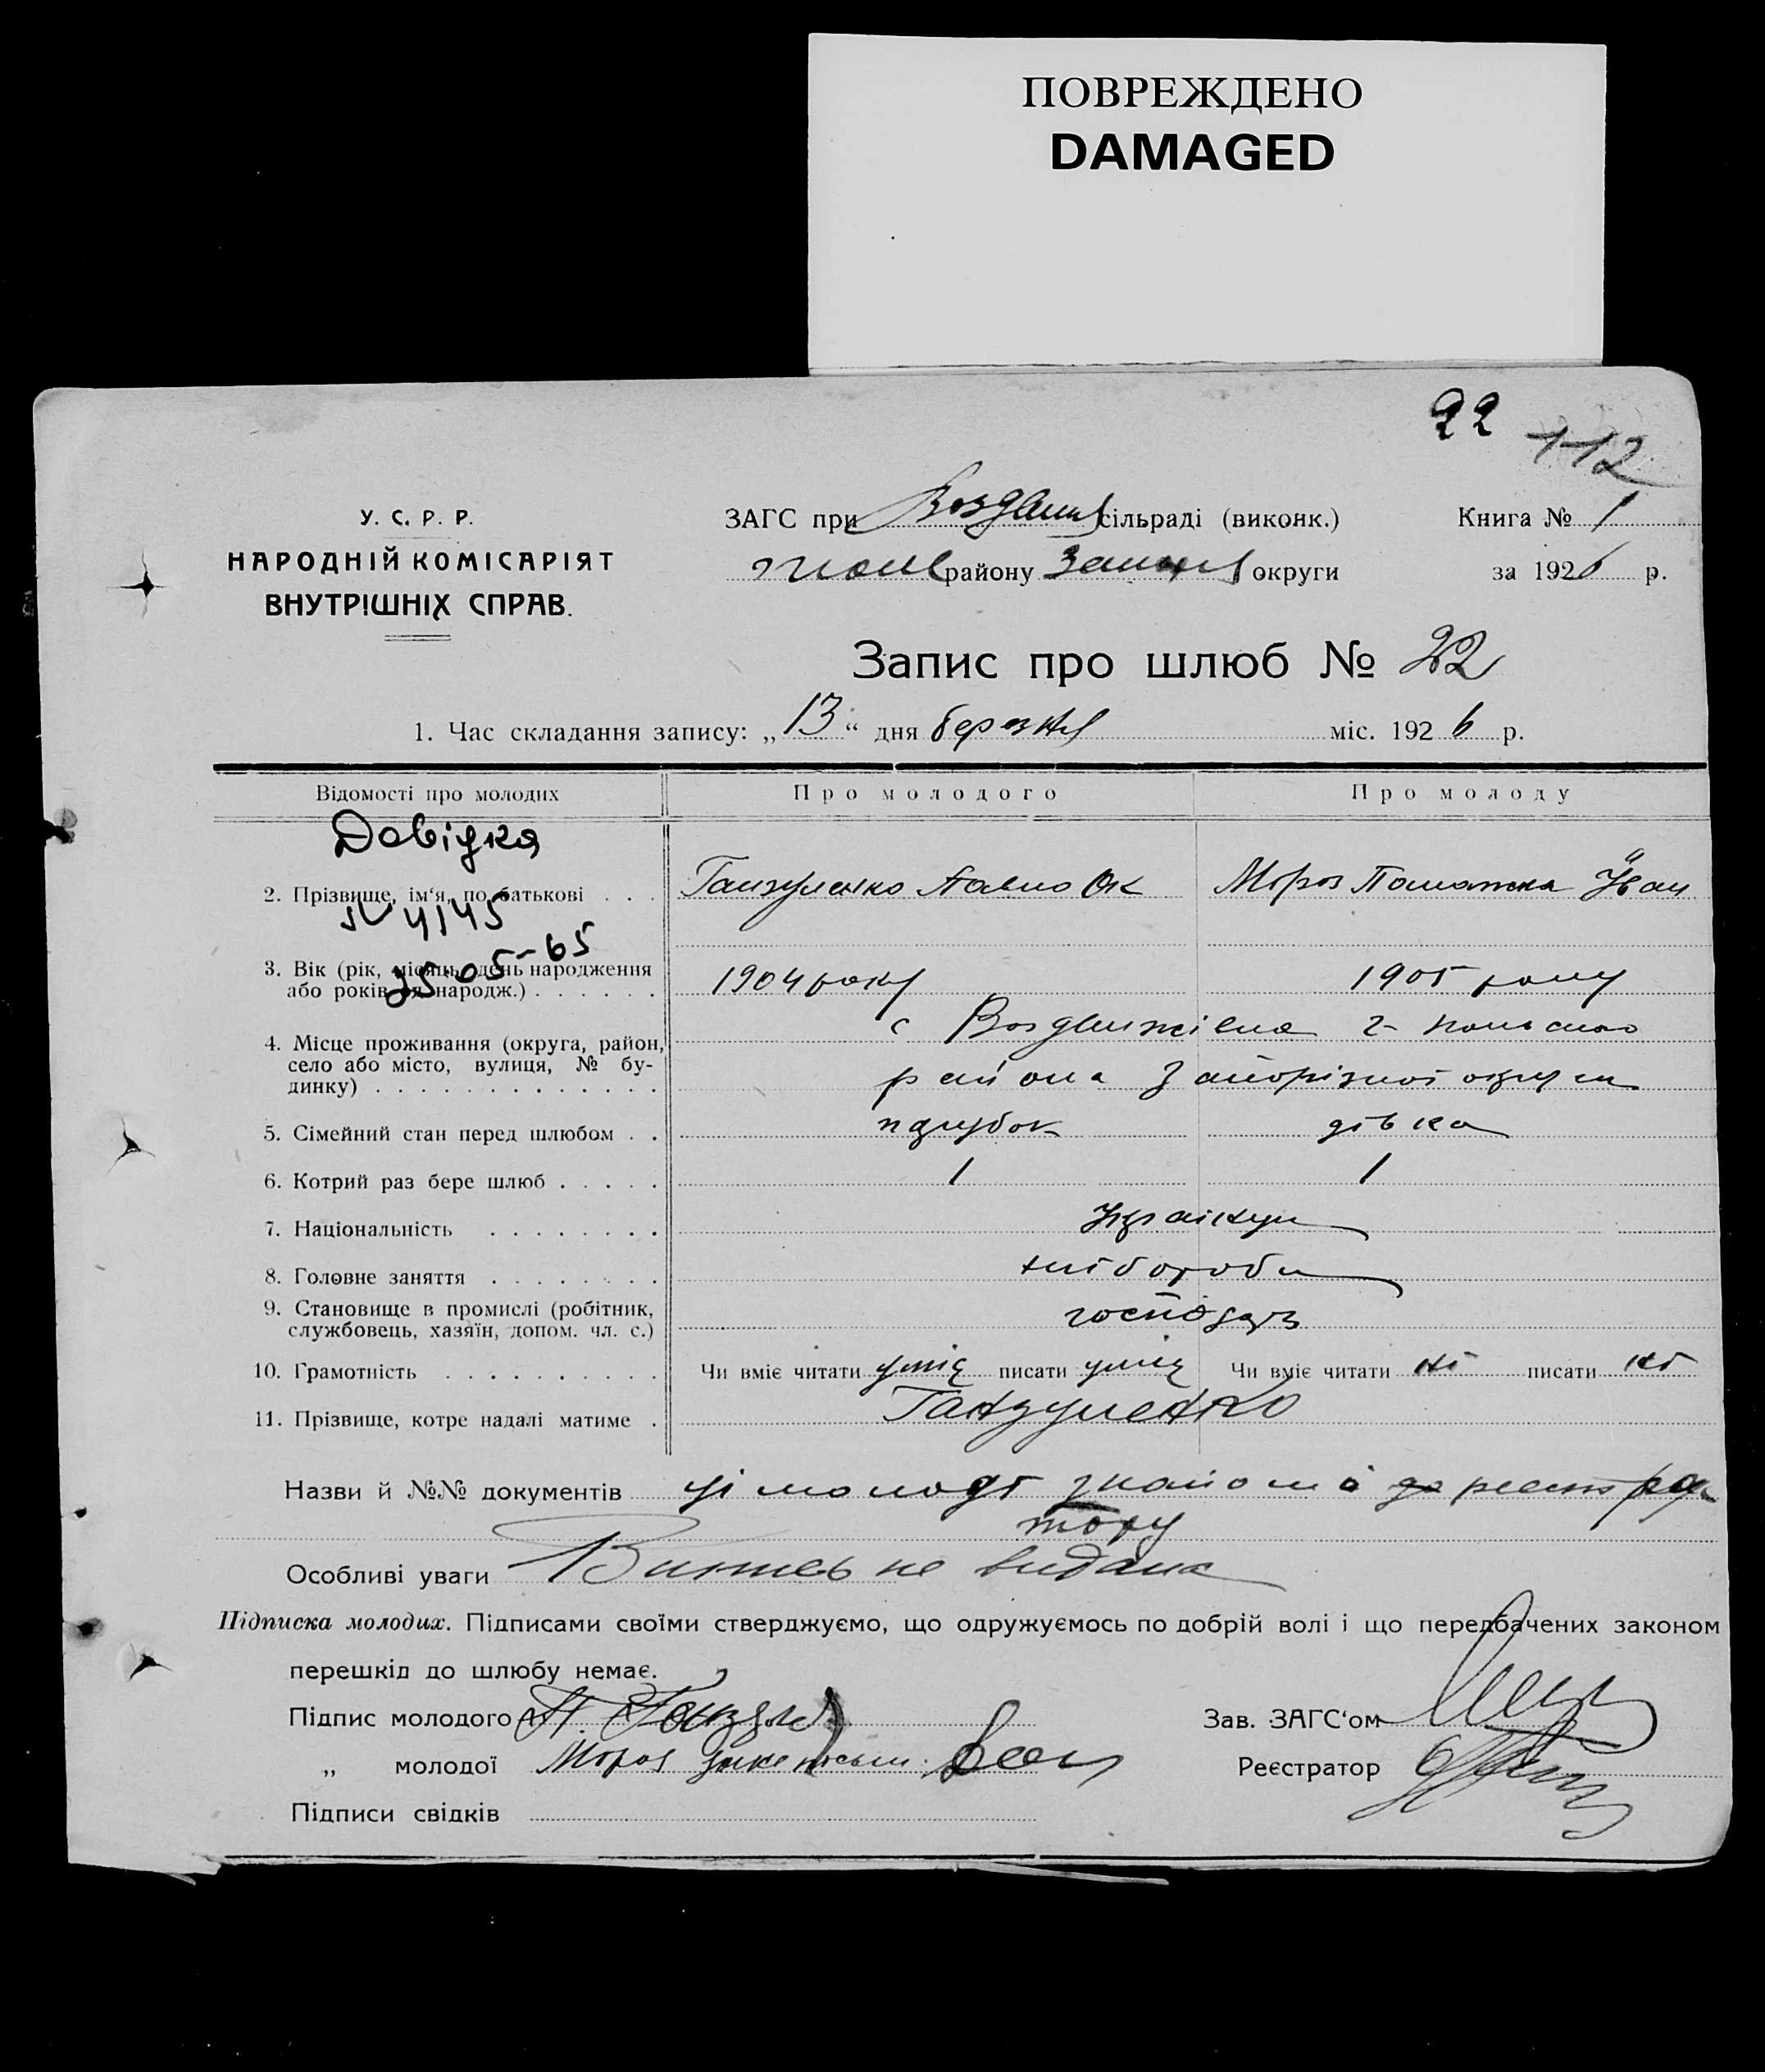 ПОВРЕЖДЕНО
DAMAGED
22
112
У. С. Р. Р.
НАРОДНІЙ КОМІСАРІЯТ
ВНУТРІШНІХ СПРАВ.
ЗАГС при Воздвиж сільраді (виконк.)
району округи
Книга № 1
за 1926 р.
Запис про шлюб № 22
1. Час складання запису: „13“ дня березня міс. 1926 р.
Відомості про молодих
Про молодого
Про молоду
Довідка
2. Прізвище, ім‘я, по батькові . . .
Ганзуленко Павло Ок
Мороз Іван
№ 4145
25-05-65
3. Вік (рік, місяць, день народження
або років від народж.) . . . . . .
1904 року
1905 року
4. Місце проживання (округа, район,
село або місто, вулиця, № бу-
динку) . . . . . . . . . . . . .
с Воздвижівка г-польсько
района Запорізкої округи
5. Сімейний стан перед шлюбом . .
парубок
дівка
6. Котрий раз бере шлюб . . . . .
1
1
7. Національність . . . . . . . .
Українци
8. Головне заняття . . . . . . . .
хліборобы
9. Становище в промислі (робітник,
службовець, хазяїн, допом. чл. с.)
господарь
10. Грамотність . . . . . . . . . .
Чи вміє читати уміє писати уміє
Чи вміє читати ні писати ні
11. Прізвище, котре надалі матиме .
Ганзуленко
Назви й №№ документів ці молоді знайомі реєстра
тору
Особливі уваги не видана
Підписка молодих. Підписами своїми стверджуємо, що одружуємось по добрій волі і що передбачених законом
перешкід до шлюбу немає.
Підпис молодого
Зав. ЗАГС‘ом
„ молодої Мороз
Реєстратор
Підписи свідків